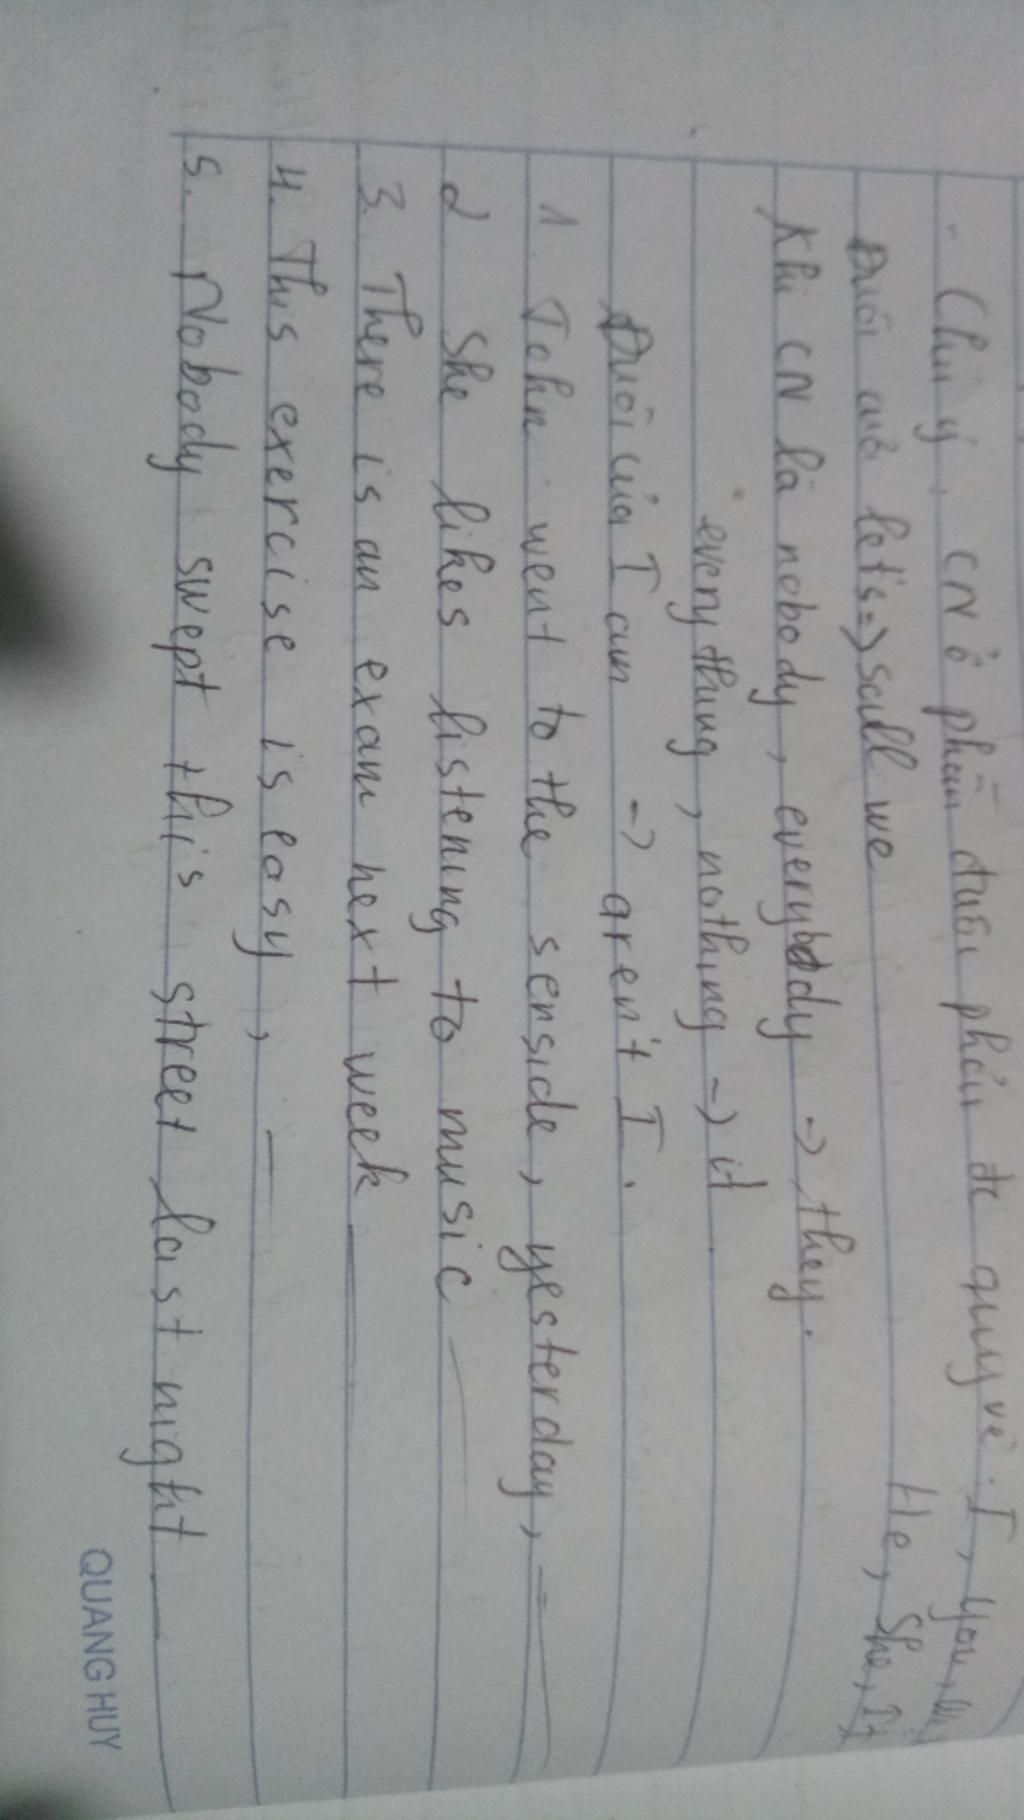 - Chú ý. CN ở phần đuôi phải đc quy về. I, you, we,
He, She, It
Đuôi của let's => sall we
Khi CN là nobody, everybody -> they.
every thing, nothing -> it
Đuôi của I am -> aren't I.
1. John went to the senside, yesterday, _
2 She likes listening to music _
3. There is an exam next week _
4. This exercise is easy, _
5. Nobody swept this street last night _
QUANG HUY